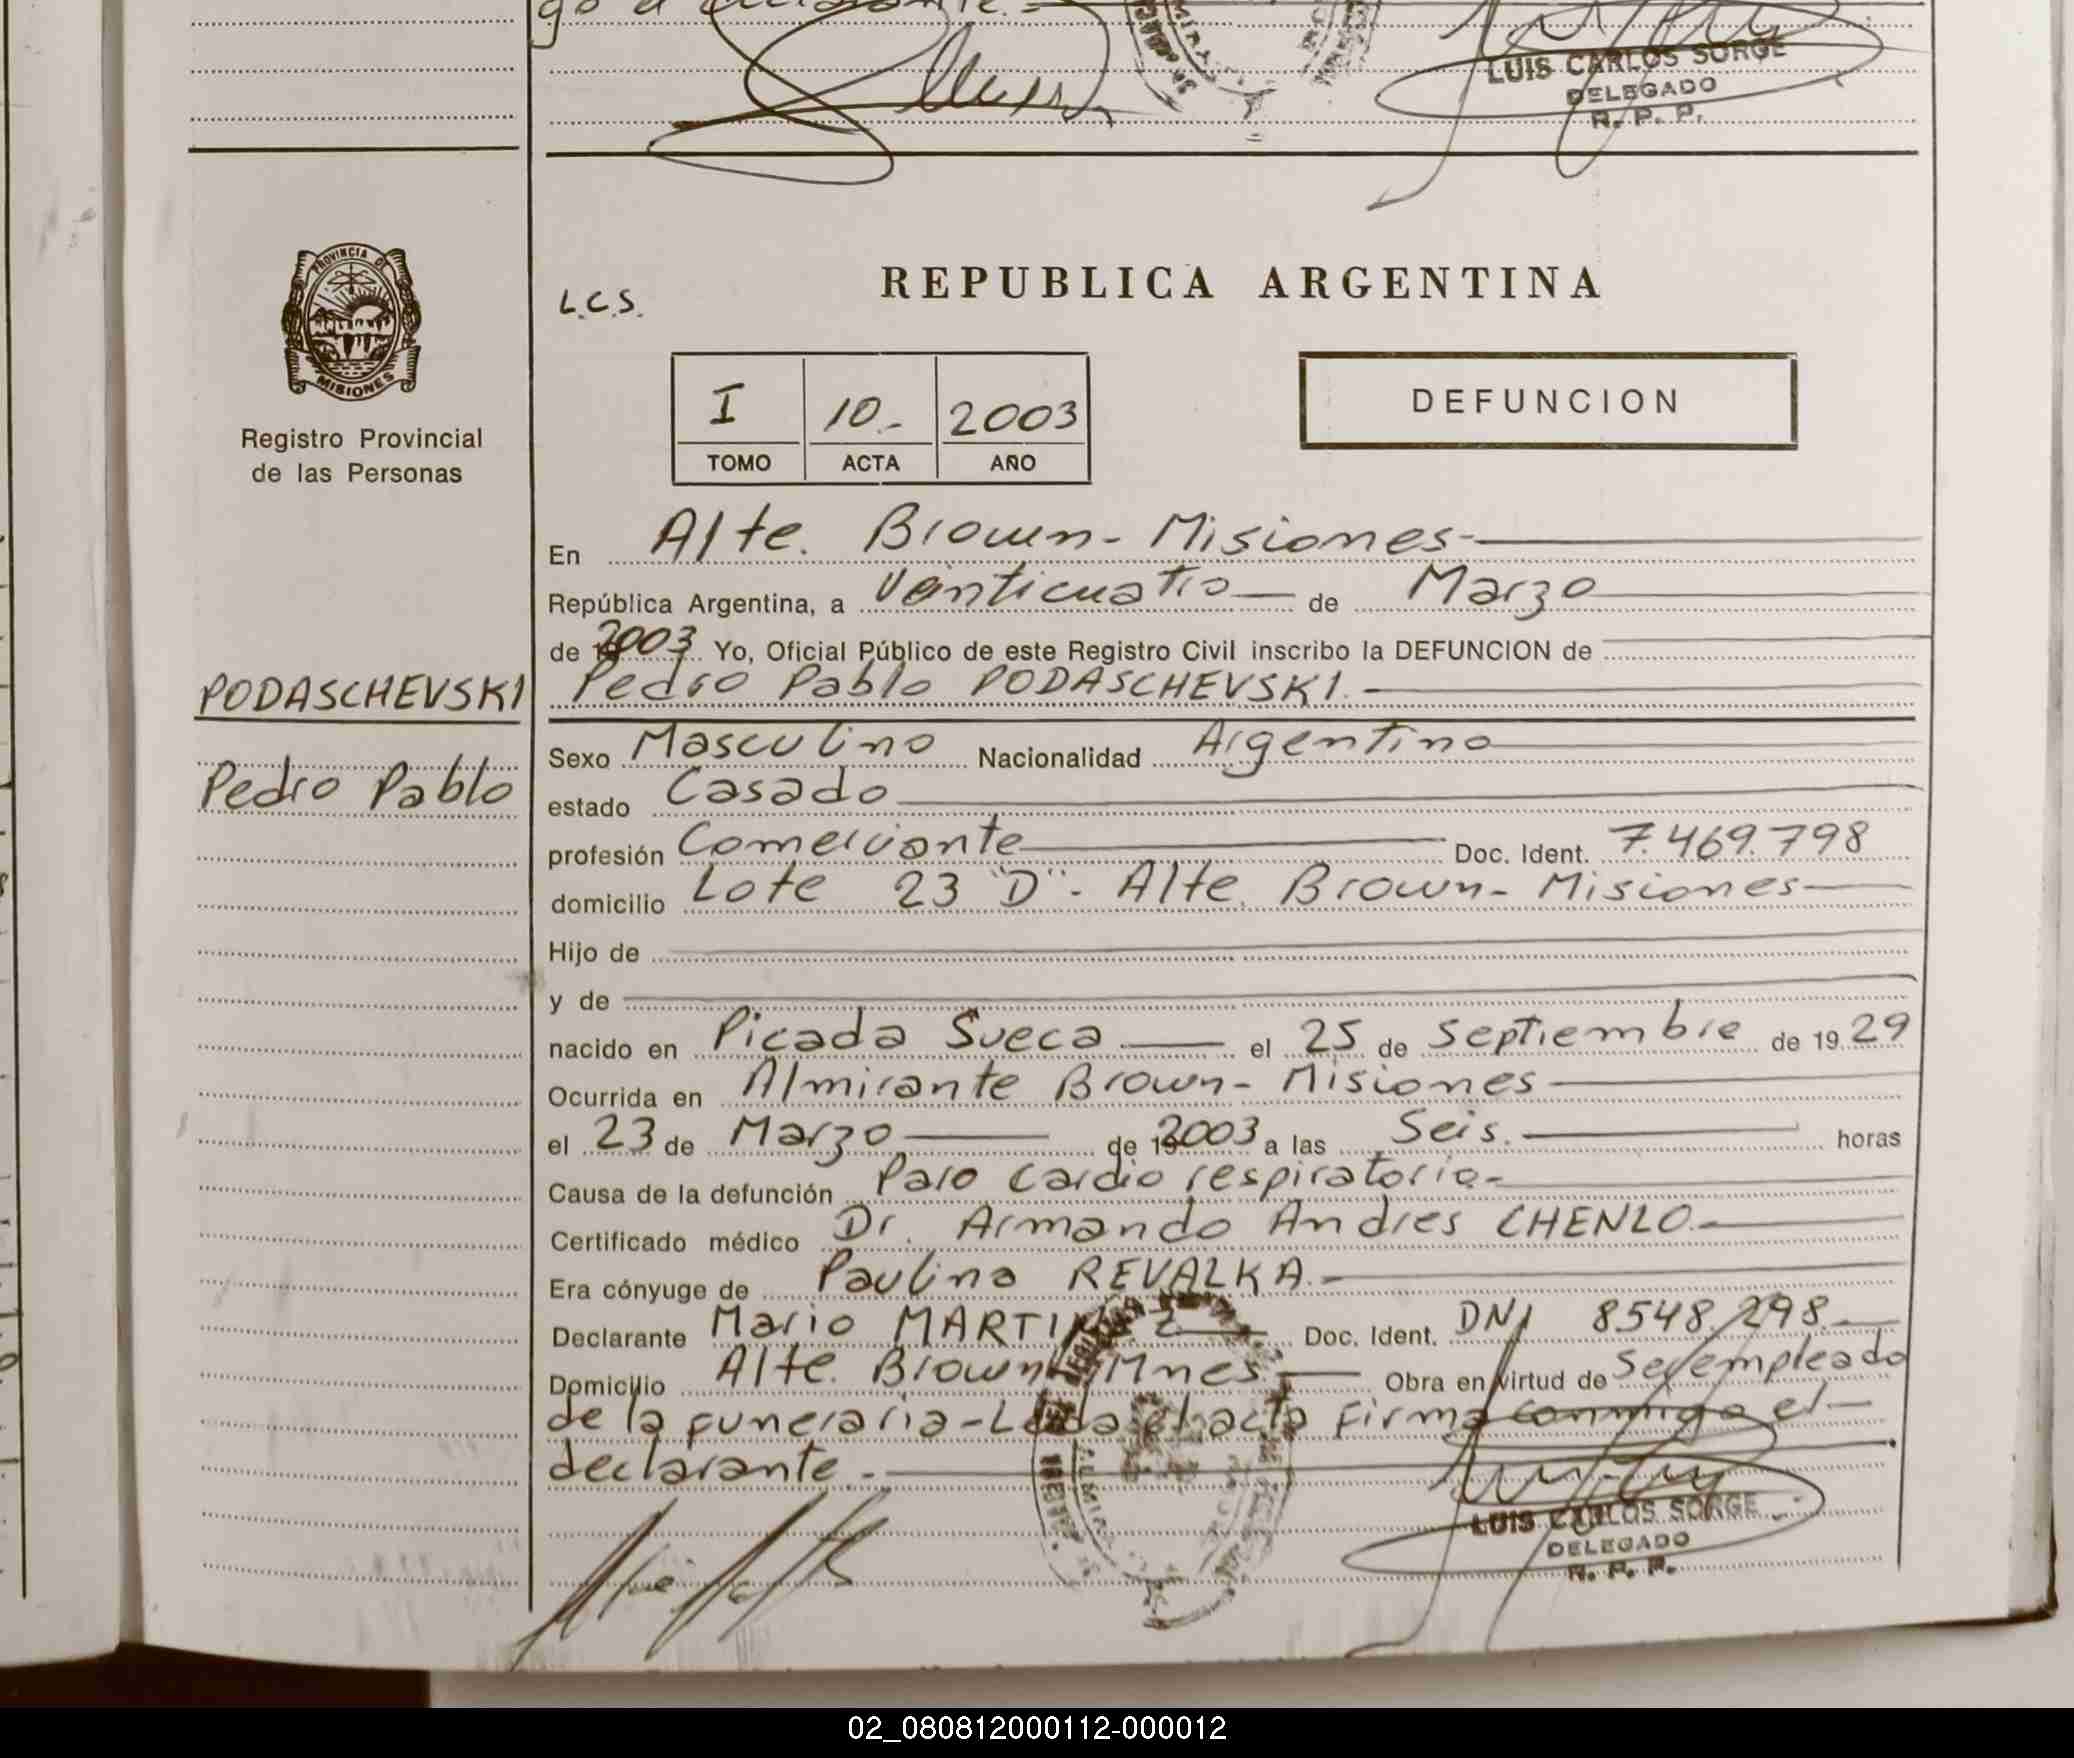 LUIS CARLOS SORGE
DELEGADO
R. P. P.
PROVINCIA DE
MISIONES
Registro Provincial
de las Personas
L.C.S.
REPUBLICA ARGENTINA
I 10.- 2003
TOMO ACTA AÑO
DEFUNCION
En Alte. Brown - Misiones
República Argentina, a Veinticuatro de Marzo
de 2003 Yo, Oficial Público de este Registro Civil inscribo la DEFUNCION de
PODASCHEVSKI
Pedro Pablo
Pedro Pablo PODASCHEVSKI.-
Sexo Masculino Nacionalidad Argentina
estado Casado
profesión Comerciante Doc. Ident. 7.469.798
domicilio Lote 23 "D" - Alte. Brown - Misiones
Hijo de
y de
nacido en Picada Sueca el 25 de Septiembre de 1929
Ocurrida en Almirante Brown - Misiones
el 23 de Marzo de 2003 a las Seis. horas
Causa de la defunción Paro Cardio respiratorio-
Certificado médico Dr. Armando Andres CHENLO.-
Era cónyuge de Paulina REVALKA.-
Declarante Mario MARTINEZ Doc. Ident. DNI 8548.298.-
Domicilio Alte. Brown Mnes.- Obra en virtud de Ser empleado
de la funeraria - Leída el acta firma conmigo el
declarante.-
LUIS CARLOS SORGE
DELEGADO
R. P. P.
02_080812000112-000012